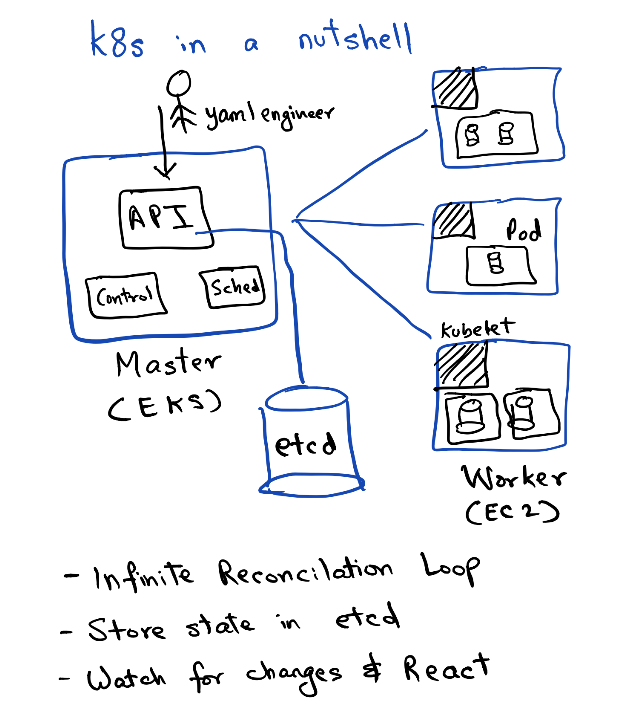 k8s in a nutshell
yaml engineer
API
Control
Sched
Master
(EKS)
etcd
Pod
Kubelet
Worker
(EC2)
- Infinite Reconcilation Loop
- Store state in etcd
- Watch for changes & React